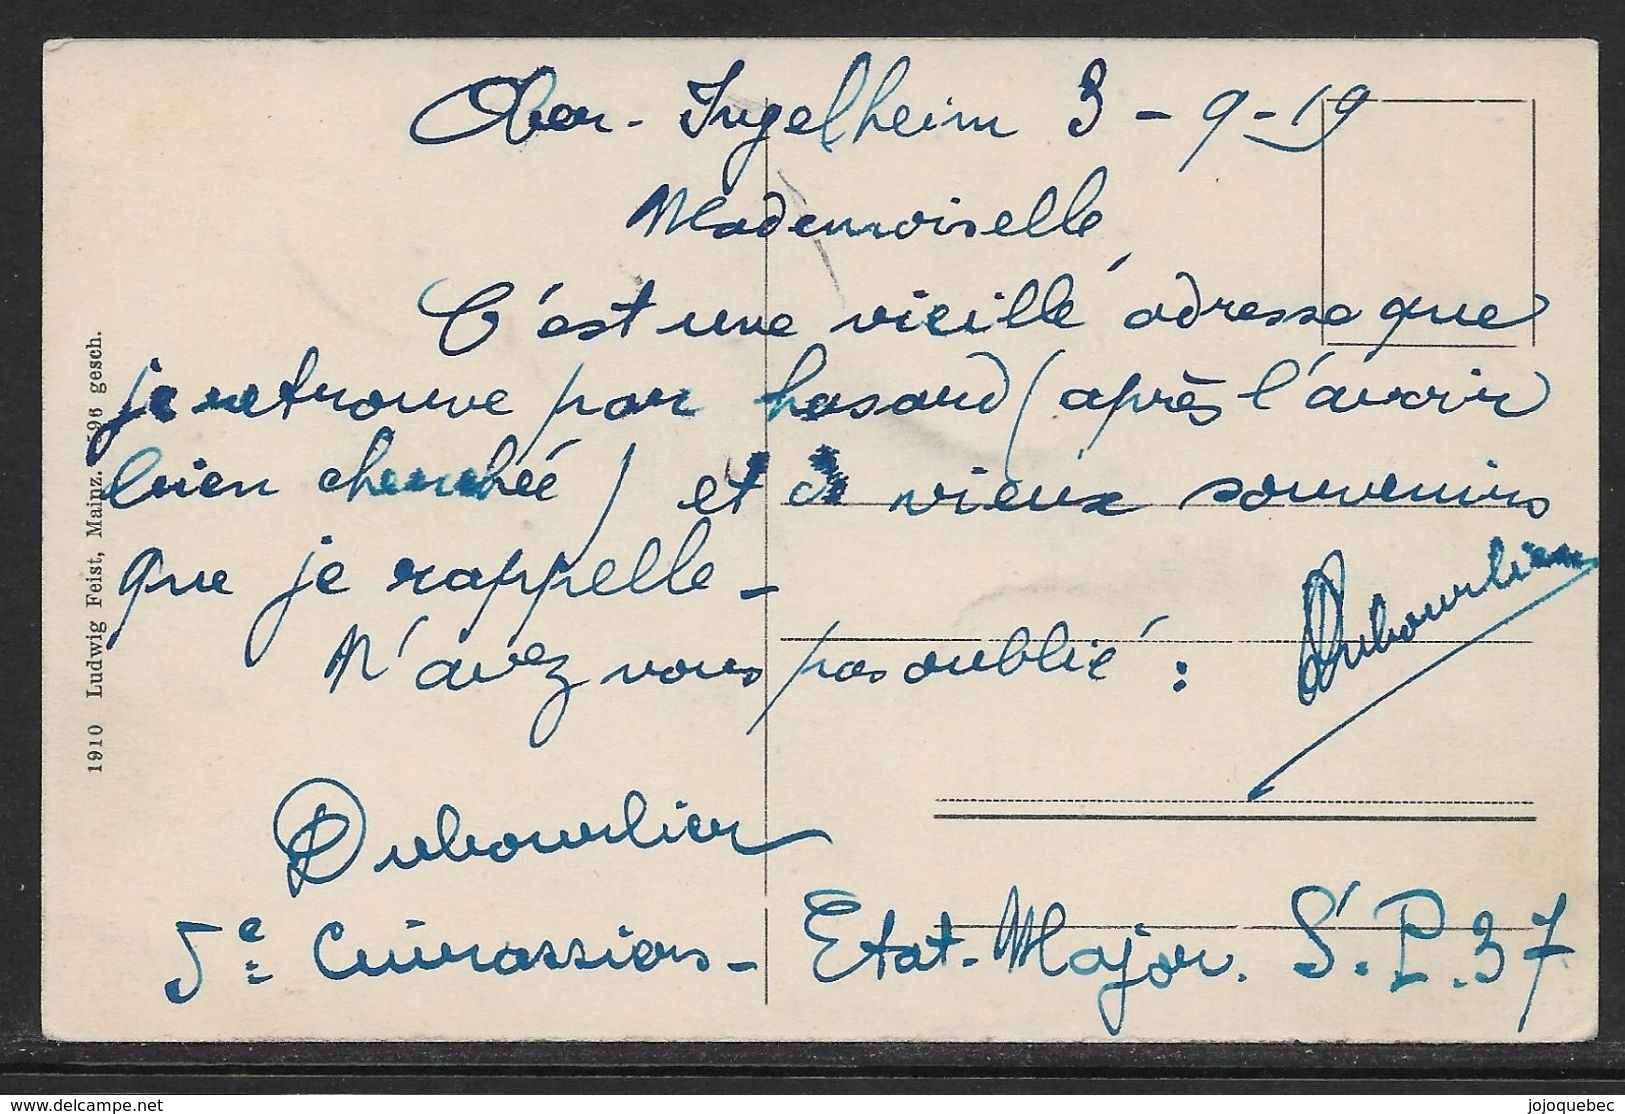 Ober-Ingelheim 3-9-19
Mademoiselle
C'est une vieille adresse que
je retrouve par hasard (après l'avoir
bien cherchée) et de vieux souvenirs
que je rappelle-
N'avez vous pas oublié :
Dubourlier
Dubourlier
5e Cuirassiers - Etat-Major. S.P. 37
1910 Ludwig Feist, Mainz. 596 gesch.
delcampe.net
jojoquebec